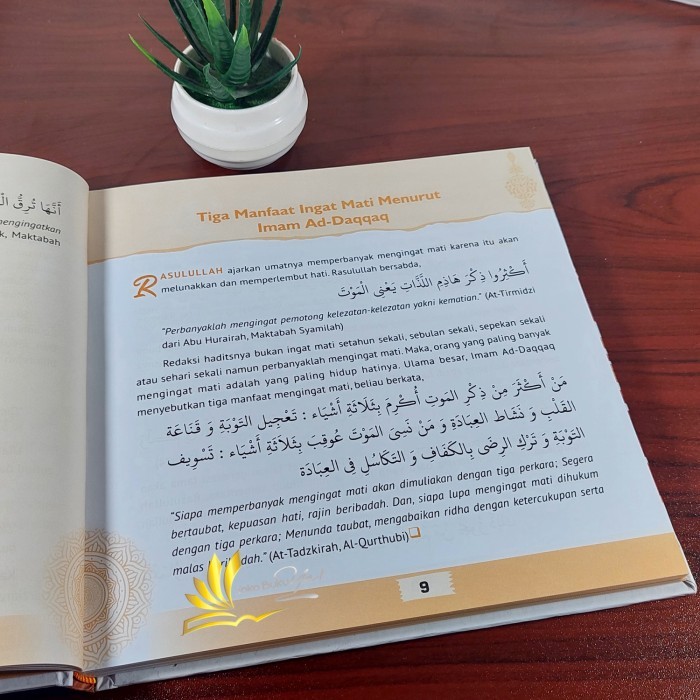 أَنَّهَا تُرِقُّ
mengingatkan
k, Maktabah
Tiga Manfaat Ingat Mati Menurut
Imam Ad-Daqqaq
RASULULLAH ajarkan umatnya memperbanyak mengingat mati karena itu akan
melunakkan dan memperlembut hati. Rasulullah bersabda,
أَكْثِرُوا ذِكْرَ هَاذِمِ اللَّذَّاتِ يَعْنِى الْمَوْتَ
"Perbanyaklah mengingat pemotong kelezatan-kelezatan yakni kematian." (At-Tirmidzi
dari Abu Hurairah, Maktabah Syamilah)
Redaksi haditsnya bukan ingat mati setahun sekali, sebulan sekali, sepekan sekali
atau sehari sekali namun perbanyaklah mengingat mati. Maka, orang yang paling banyak
mengingat mati adalah yang paling hidup hatinya. Ulama besar, Imam Ad-Daqqaq
menyebutkan tiga manfaat mengingat mati, beliau berkata,
مَنْ أَكْثَرَ مِنْ ذِكْرِ المَوتِ أُكْرِمَ بِثَلاَثَةِ أَشْيَاء : تَعْجِيل التَوْبَةِ وَ قَنَاعَة
القَلْبِ وَ نَشَاط العِبَادَةِ وَ مَنْ نَسِىَ المَوْتَ عُوقِبَ بِثَلاَثَةِ أَشْيَاء : تَسْوِيف
التَوْبَةِ وَ تَرْكِ الرِضَى بِالكَفَافِ وَ التَكَاسُلِ فِى العِبَادَة
"Siapa memperbanyak mengingat mati akan dimuliakan dengan tiga perkara; Segera
bertaubat, kepuasan hati, rajin beribadah. Dan, siapa lupa mengingat mati dihukum
dengan tiga perkara; Menunda taubat, mengabaikan ridha dengan ketercukupan serta
malas beribadah." (At-Tadzkirah, Al-Qurthubi)
9